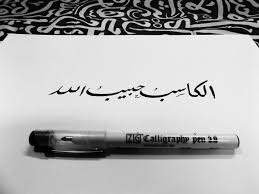 الكاسب حبيب الله
ZIG Calligraphy pen 2.0